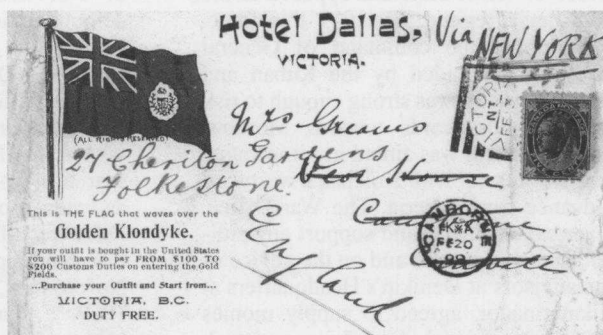 Hotel Dallas, Via
NEW YORK
VICTORIA.
(ALL RIGHTS RESERVED)
Mrs Greaves
27 Cheriton Gardens
Folkestone.
House
England
CAMBORNE
FE 20
This is THE FLAG that waves over the
Golden Klondyke.
If your outfit is bought in the United States
you will have to pay FROM $100 TO
$200 Customs Duties on entering the Gold
Fields.
...Purchase your Outfit and Start from...
VICTORIA, B.C.
DUTY FREE.